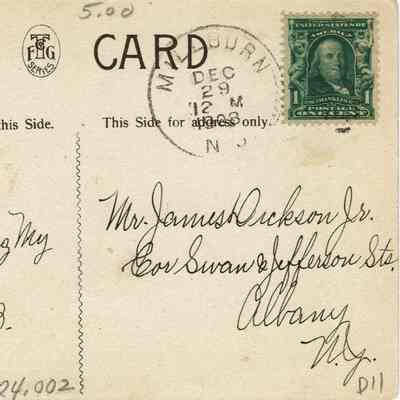 5.00
T
F G
SERIES
CARD
DEC
29
12 M
1908
N J
UNITED STATES OF
AMERICA
FRANKLIN
POSTAGE
1 ONE CENT 1
this Side.
This Side for address only.
Mr. James Dickson Jr.
Cor Swan & Jefferson Sts.
Albany
N.y.
My
3.
24,002
D11